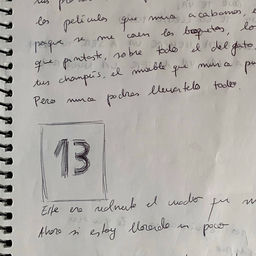 las películas que mira acabamos
porque se me caen las
que pintaste, sobre todo el del gato
tus champús, el mueble que
Pero nunca podrás llevártelo todo.
13
Este era realmente el cuadro que
Ahora si estoy llorando un poco